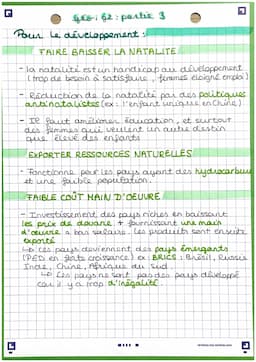 géo : G2 : partie 3
Pour le développement :
FAIRE BAISSER LA NATALITÉ
- la natalité est un handicap au développement
(trop de besoin à satisfaire, femmes éloigné emploi)
- Réduction de la natalité par des politiques
antinatalistes (ex : l'enfant unique en Chine)
- Il faut améliorer éducation, et surtout
des femmes qui veulent un autre destin
que élevé des enfants
EXPORTER RESSOURCES NATURELLES
- Fonctionne pour les pays ayant des hydrocarbure
et une faible population.
FAIBLE COÛT MAIN D'OEUVRE
- Investissement des pays riches en baissant
les prix de douane + fournissant une main
d'oeuvre à bas salaire. Les produits sont ensuite
exporté
↳ ces pays deviennent des pays émergents
(PED en forte croissance) ex : BRICS : Brésil, Russie
Inde, Chine, Afrique du Sud
↳ Les pays ne sont pas des pays développé
car il y a trop d'inégalité.